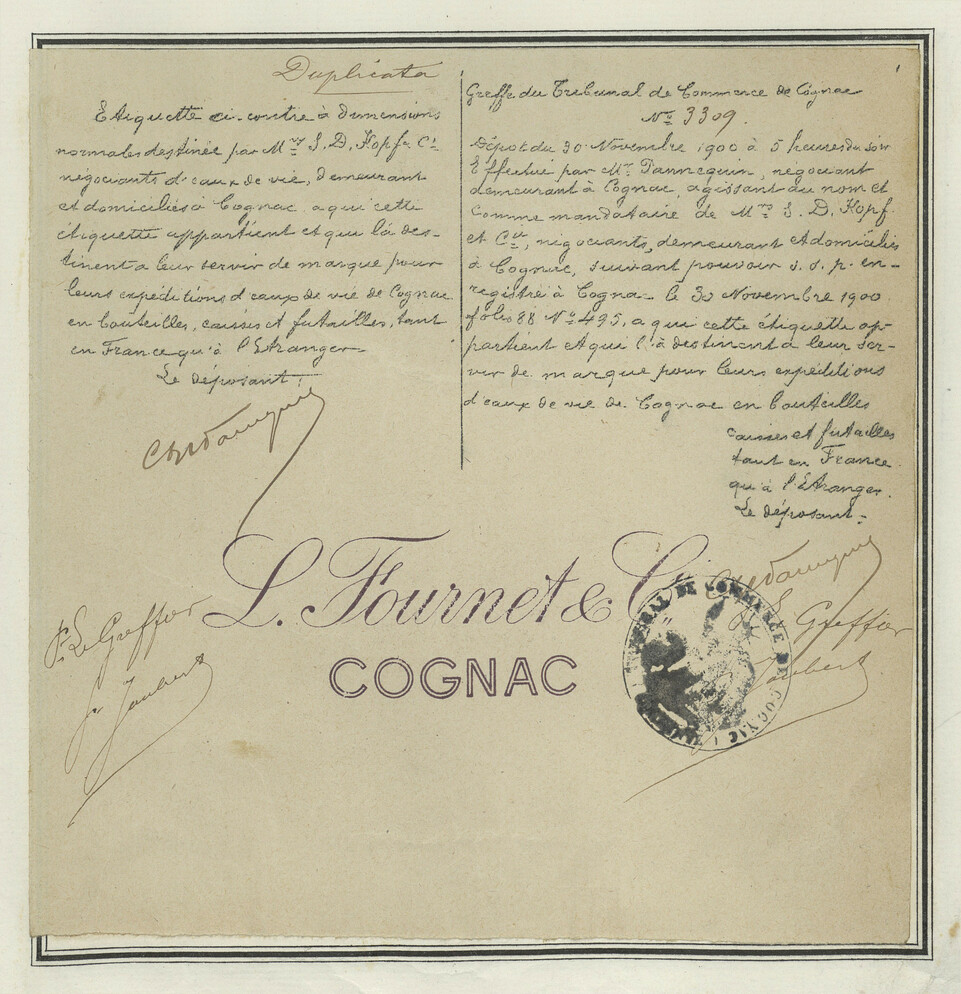 Duplicata
Etiquette ci-contre à dimensions
normales destinée par Mrs S. D. Hopf & Cie
négociants d'eaux de vie, demeurant
et domiciliés à Cognac a qui cette
étiquette appartient et qui la des-
tinent a leur servir de marque pour
leurs expéditions d'eaux de vie de Cognac
en bouteilles, caisses et futailles, tant
en France qu'à l'Etranger.
Le déposant:
Greffe du Tribunal de Commerce de Cognac
No 3309.
Dépôt du 30 Novembre 1900 à 5 heures du soir
Effectué par Mr Pannequin, négociant
demeurant à Cognac, agissant au nom et
comme mandataire de Mrs S. D. Hopf.
et Cie, négociants, demeurant et domiciliés
à Cognac, suivant pouvoir s. s. p. en-
registré à Cognac le 30 Novembre 1900
folio 88 No 495, a qui cette étiquette ap-
partient et qui l'a destinent a leur ser-
vir de marque pour leurs expéditions
d'eaux de vie de Cognac en bouteilles
caisses et futailles
tant en France
qu'à l'Etranger.
Le déposant:
L. Fournet & Cie
COGNAC
Pr Le Greffier
Joubert
Le Greffier
Joubert
TRIBUNAL DE COMMERCE DE COGNAC